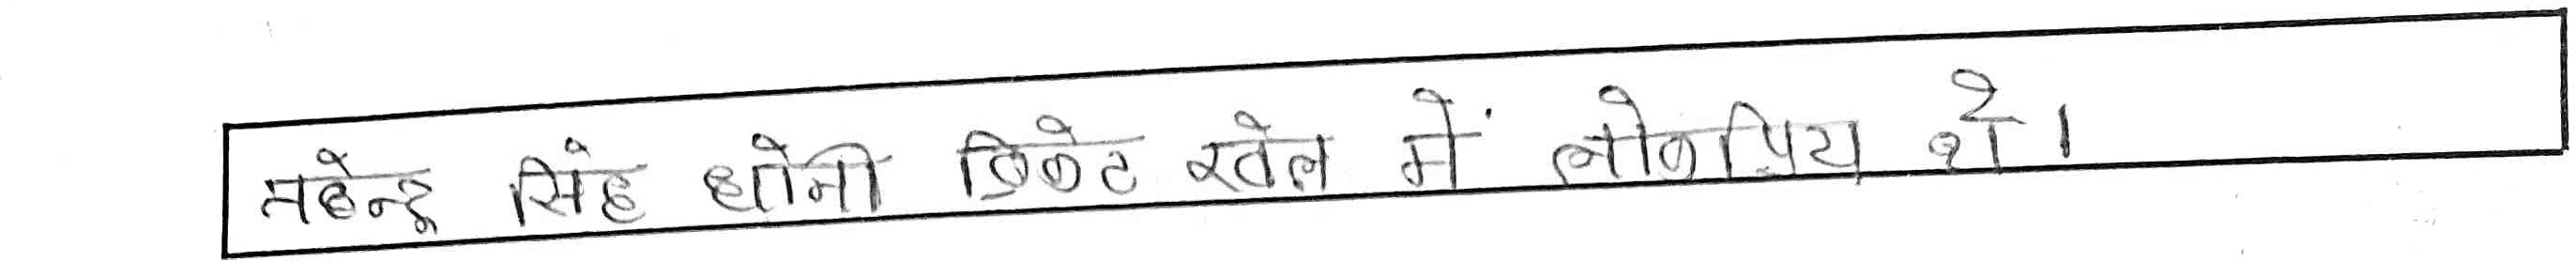 महेन्द्र सिंह धोनी क्रिकेट खेल में लोकप्रिय थे।